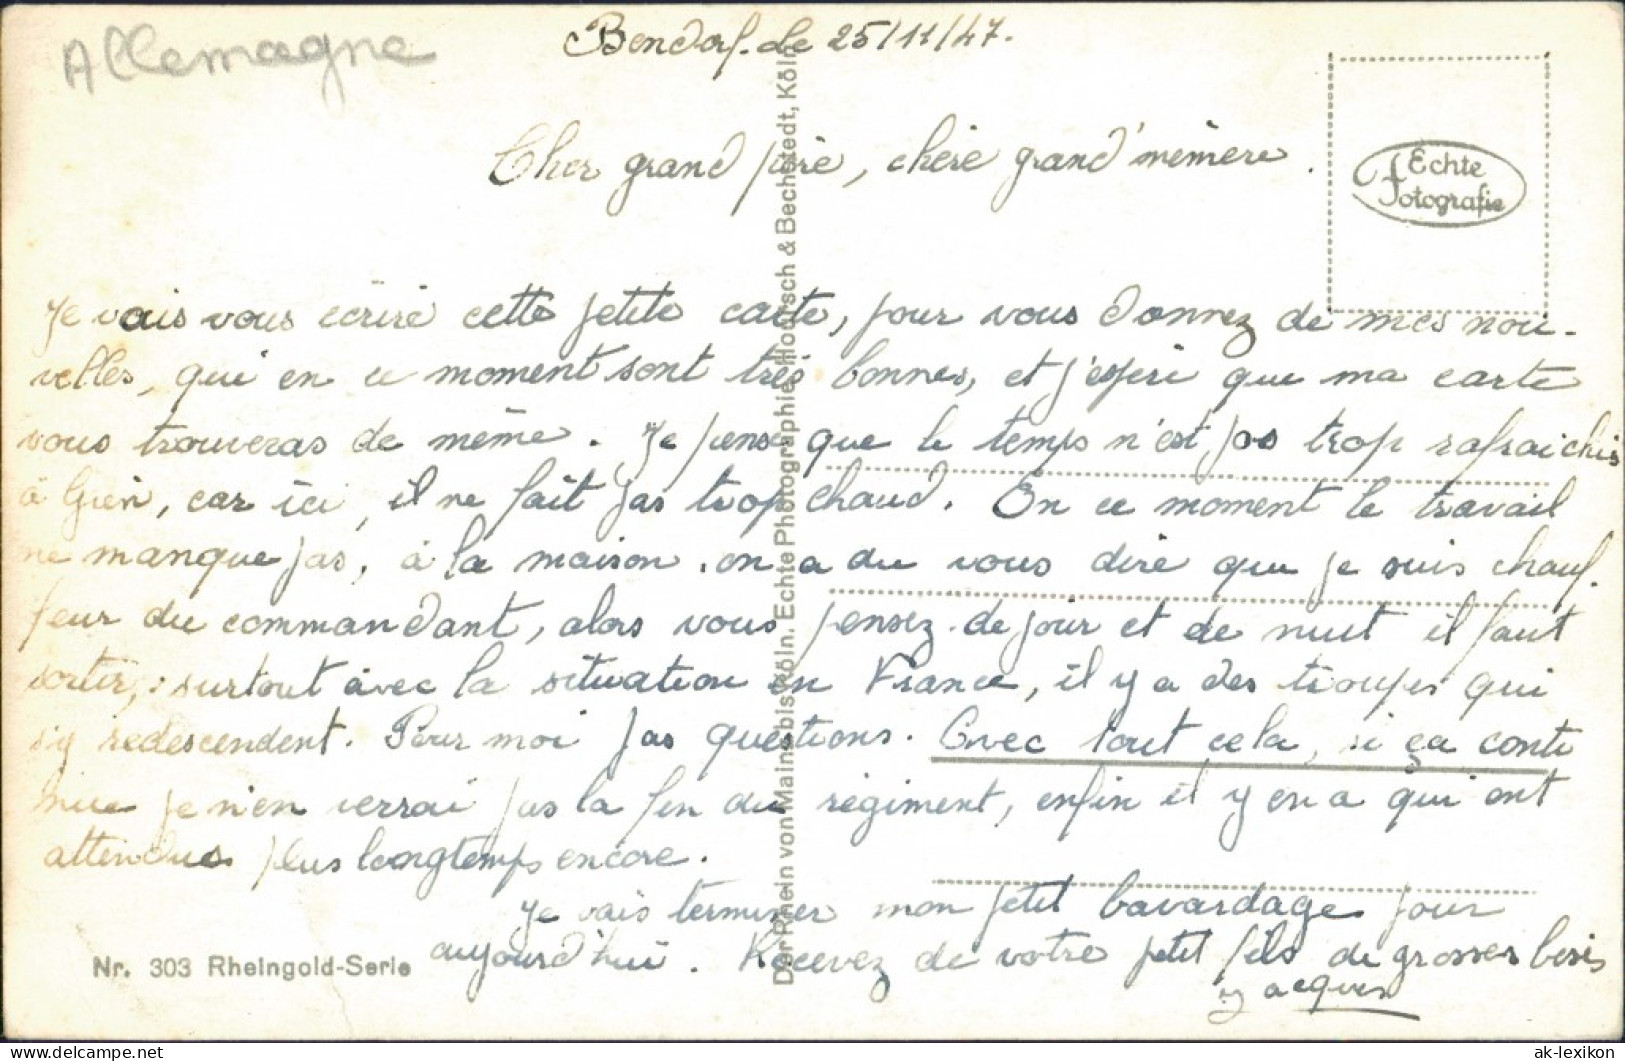 Allemagne
Bendorf. Le 25/11/47.
Cher grand père, chère grand'mèmère.
Echte
fotografie
Je vais vous écrire cette petite carte, pour vous donnez de mes nou-
velles, qui en ce moment sont très bonnes, et j'espère que ma carte
vous trouveras de même. Je pense que le temps n'est pas trop rafraichis
à Gien, car ici, il ne fait pas trop chaud. On ce moment le travail
ne manque pas, à la maison. on a du vous dire que je suis chauf.
feur du commandant, alors vous pensez. de jour et de nuit il faut
sortir, surtout avec la situation en France, il y a des troupes qui
s'y redescendent. Pour moi pas questions. Avec tout cela, si ça conti
nue je n'en verrai pas la fin du régiment, enfin il y en a qui ont
attendus plus longtemps encore.
Je vais terminer mon petit bavardage pour
aujourd'hui. Recevez de votre petit fils de grosses
Jacques
Nr. 303 Rheingold-Serie
Der Rhein von Mainz bis Köln. Echte Photographie, Hoursch & Bechstedt, Köln
delcampe.net
ak-lexikon